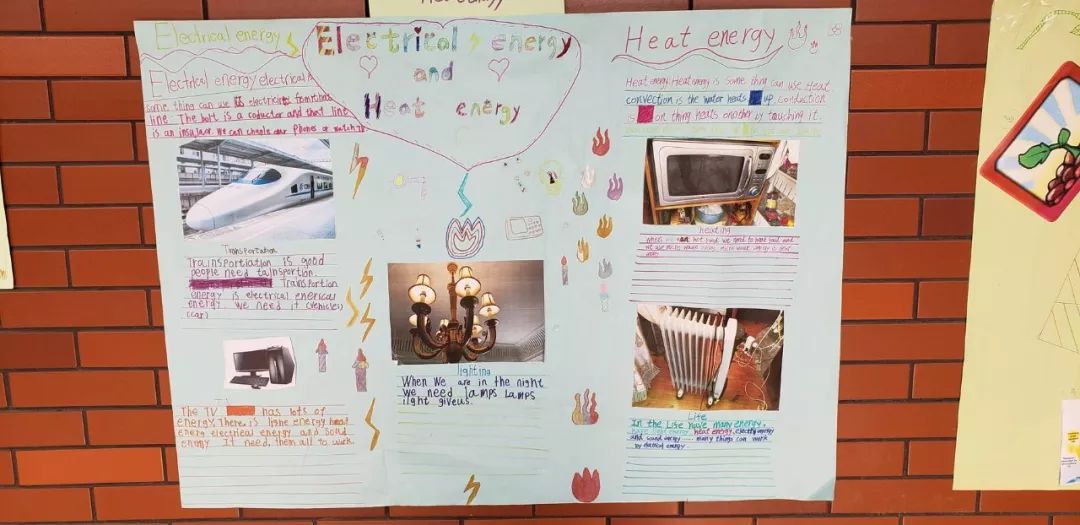 Electrical energy
Electrical energy electrical
some thing can we electricity from the
line. The bolt is a coductor and that line
is an insulator. We can our Phones or watch
Transportation
Trainsportiation is good
people need tainsportion.
Transportion
energy is electrical enerical
energy. We need it (vehicles)
(car)
The TV has lots of
energy. There is lighe energy heat
energ electrical energy and Sound
energy It need them all to work.
Electrical energy
and
Heat energy
lighting
When We are in the night
we need lamps Lamps
light giveus.
Heat energy
Heat enery Heat energy is some thing can use Heat
convection is the water heats up. Conduction
is on thing heats onother by touching it.
heating
Life
In the Life have many energy.
heat energy, electricy energy
and sound energy many things can work
by electrical energy